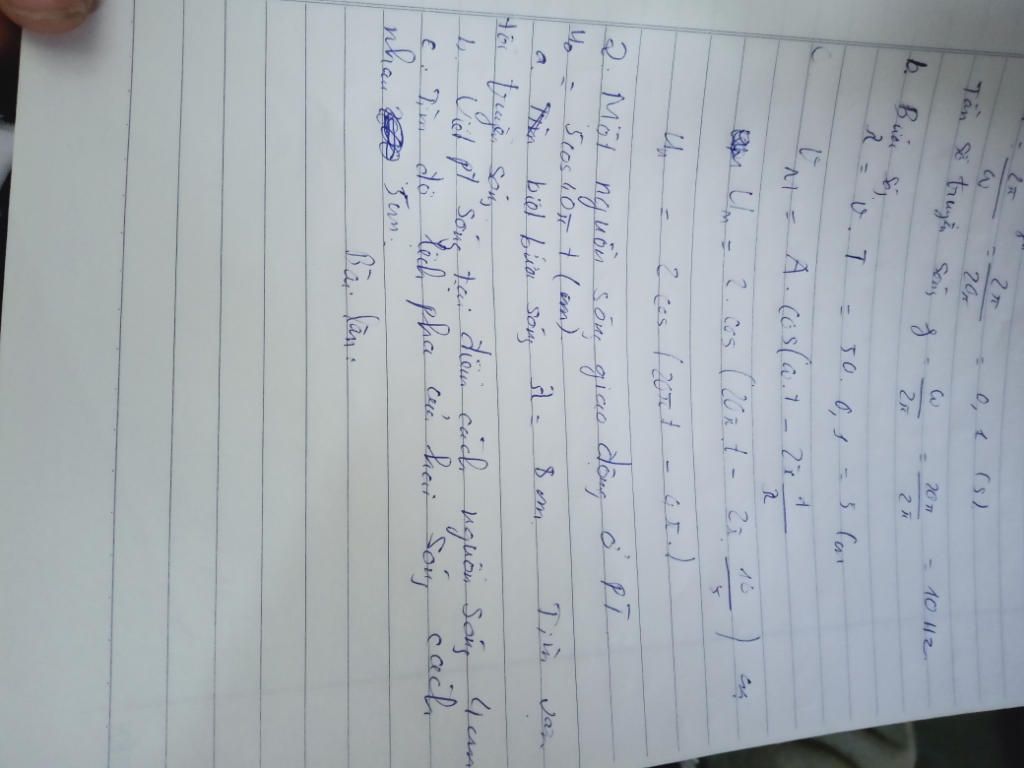 = 2π/ω = 2π/20π = 0,1 (s)
Tần số truyền sóng f = ω/2π = 20π/2π = 10 Hz.
b. Bước sóng
λ = v. T = 50. 0,1 = 5 cm
c U_M = A. cos(ω.t - 2π d/λ
U_M = 2. cos (20π.t - 2π. 10/5) cm
U_M = 2 cos (20π t - 4π.)
2. Một nguồn sóng giao động có PT
u₀ = 5 cos 40π t (cm)
a Tìm biết bước sóng λ = 8 cm Tìm vận
tốc truyền sóng
b. Viết pt sóng tại điểm cách nguồn sóng 4 cm
c. Tìm độ lệch pha của hai sóng cách
nhau 3cm.
Bài làm.